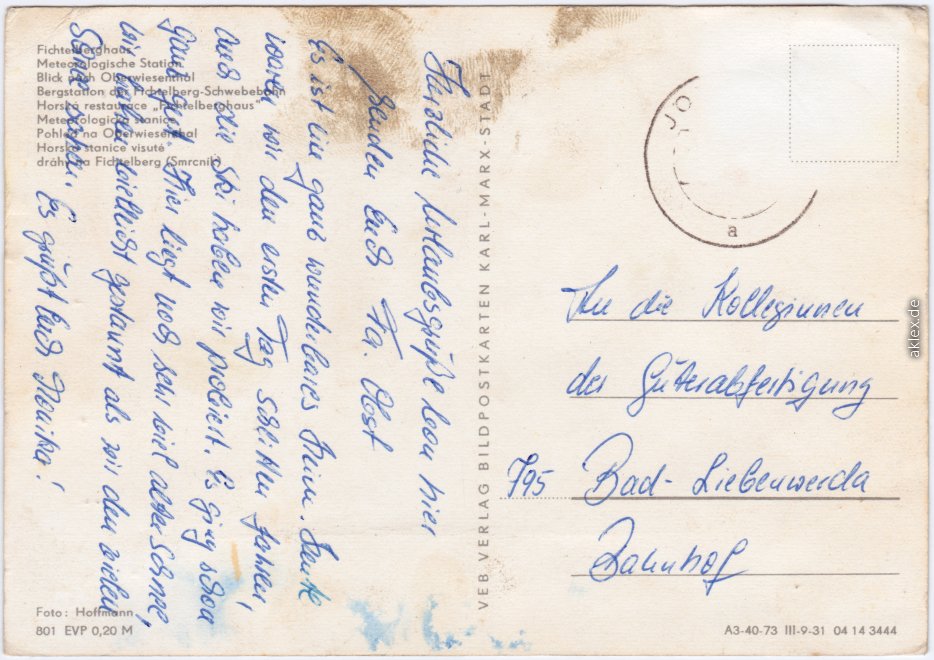 Fichtelberghaus
Meteorologische Station
Blick nach Oberwiesenthal
Bergstation der Fichtelberg-Schwebebahn
Horská restaurace „Fichtelberghaus"
Meteorologická stanice
Pohled na Oberwiesenthal
Horské stanice visuté
dráhy na Fichtelberg (Smrcnik)
Herzliche Urlaubsgrüße von hier
senden Euch Fa. Obst
Es ist eine ganz wunderbares Heim. Heute
waren wir den ersten Tag Schlitten fahren,
auch die Ski haben wir probiert. Es ging schon
ganz gut. Hier liegt noch sehr viel alter Schnee,
wir haben vielleicht gestaunt als wir den vielen
sahen. Es grüßt Euch Monika!
VEB VERLAG BILDPOSTKARTEN KARL-MARX-STADT
JO
a
An die Kolleginnen
der Güterabfertigung
795 Bad-Liebenwerda
Bahnhof
Foto: Hoffmann
801 EVP 0,20 M
A3-40-73 III-9-31 04 14 3444
aklex.de